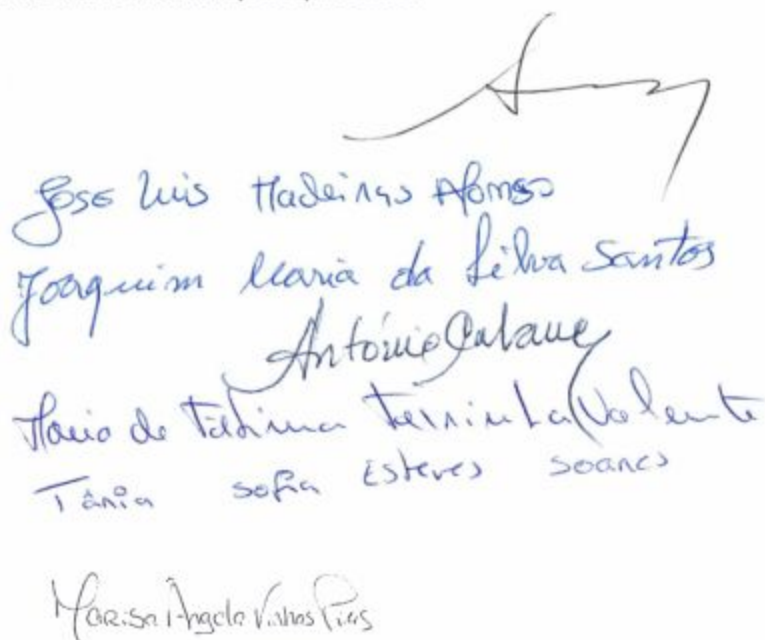 José Luis Madeiras Afonso
Joaquim Maria da Silva Santos
António
Maria de Fátima Valente
Tânia Sofia Esteves Soares
Marisa Ângela Vinhas Pires